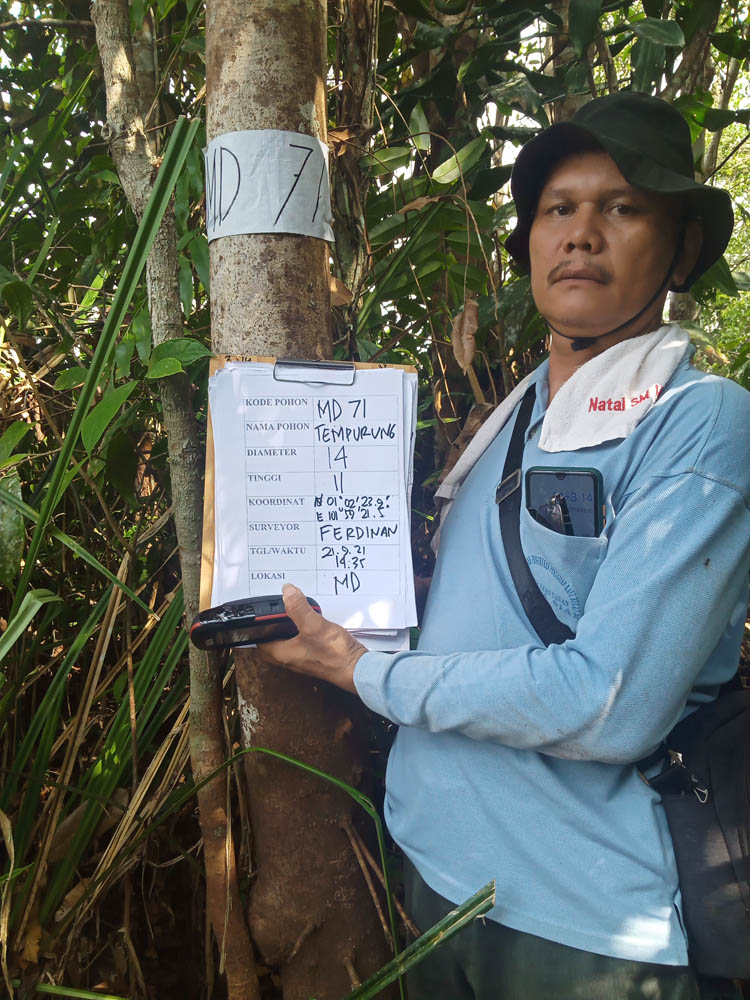 MD 71
KODE POHON MD 71
NAMA POHON TEMPURUNG
DIAMETER 14
TINGGI 11
KOORDINAT N 01° 02' 23.9"
E 101° 59' 21.5
SURVEYOR FERDINAN
TGL/WAKTU 21.9.21
14.35
LOKASI MD
Natal
3.14